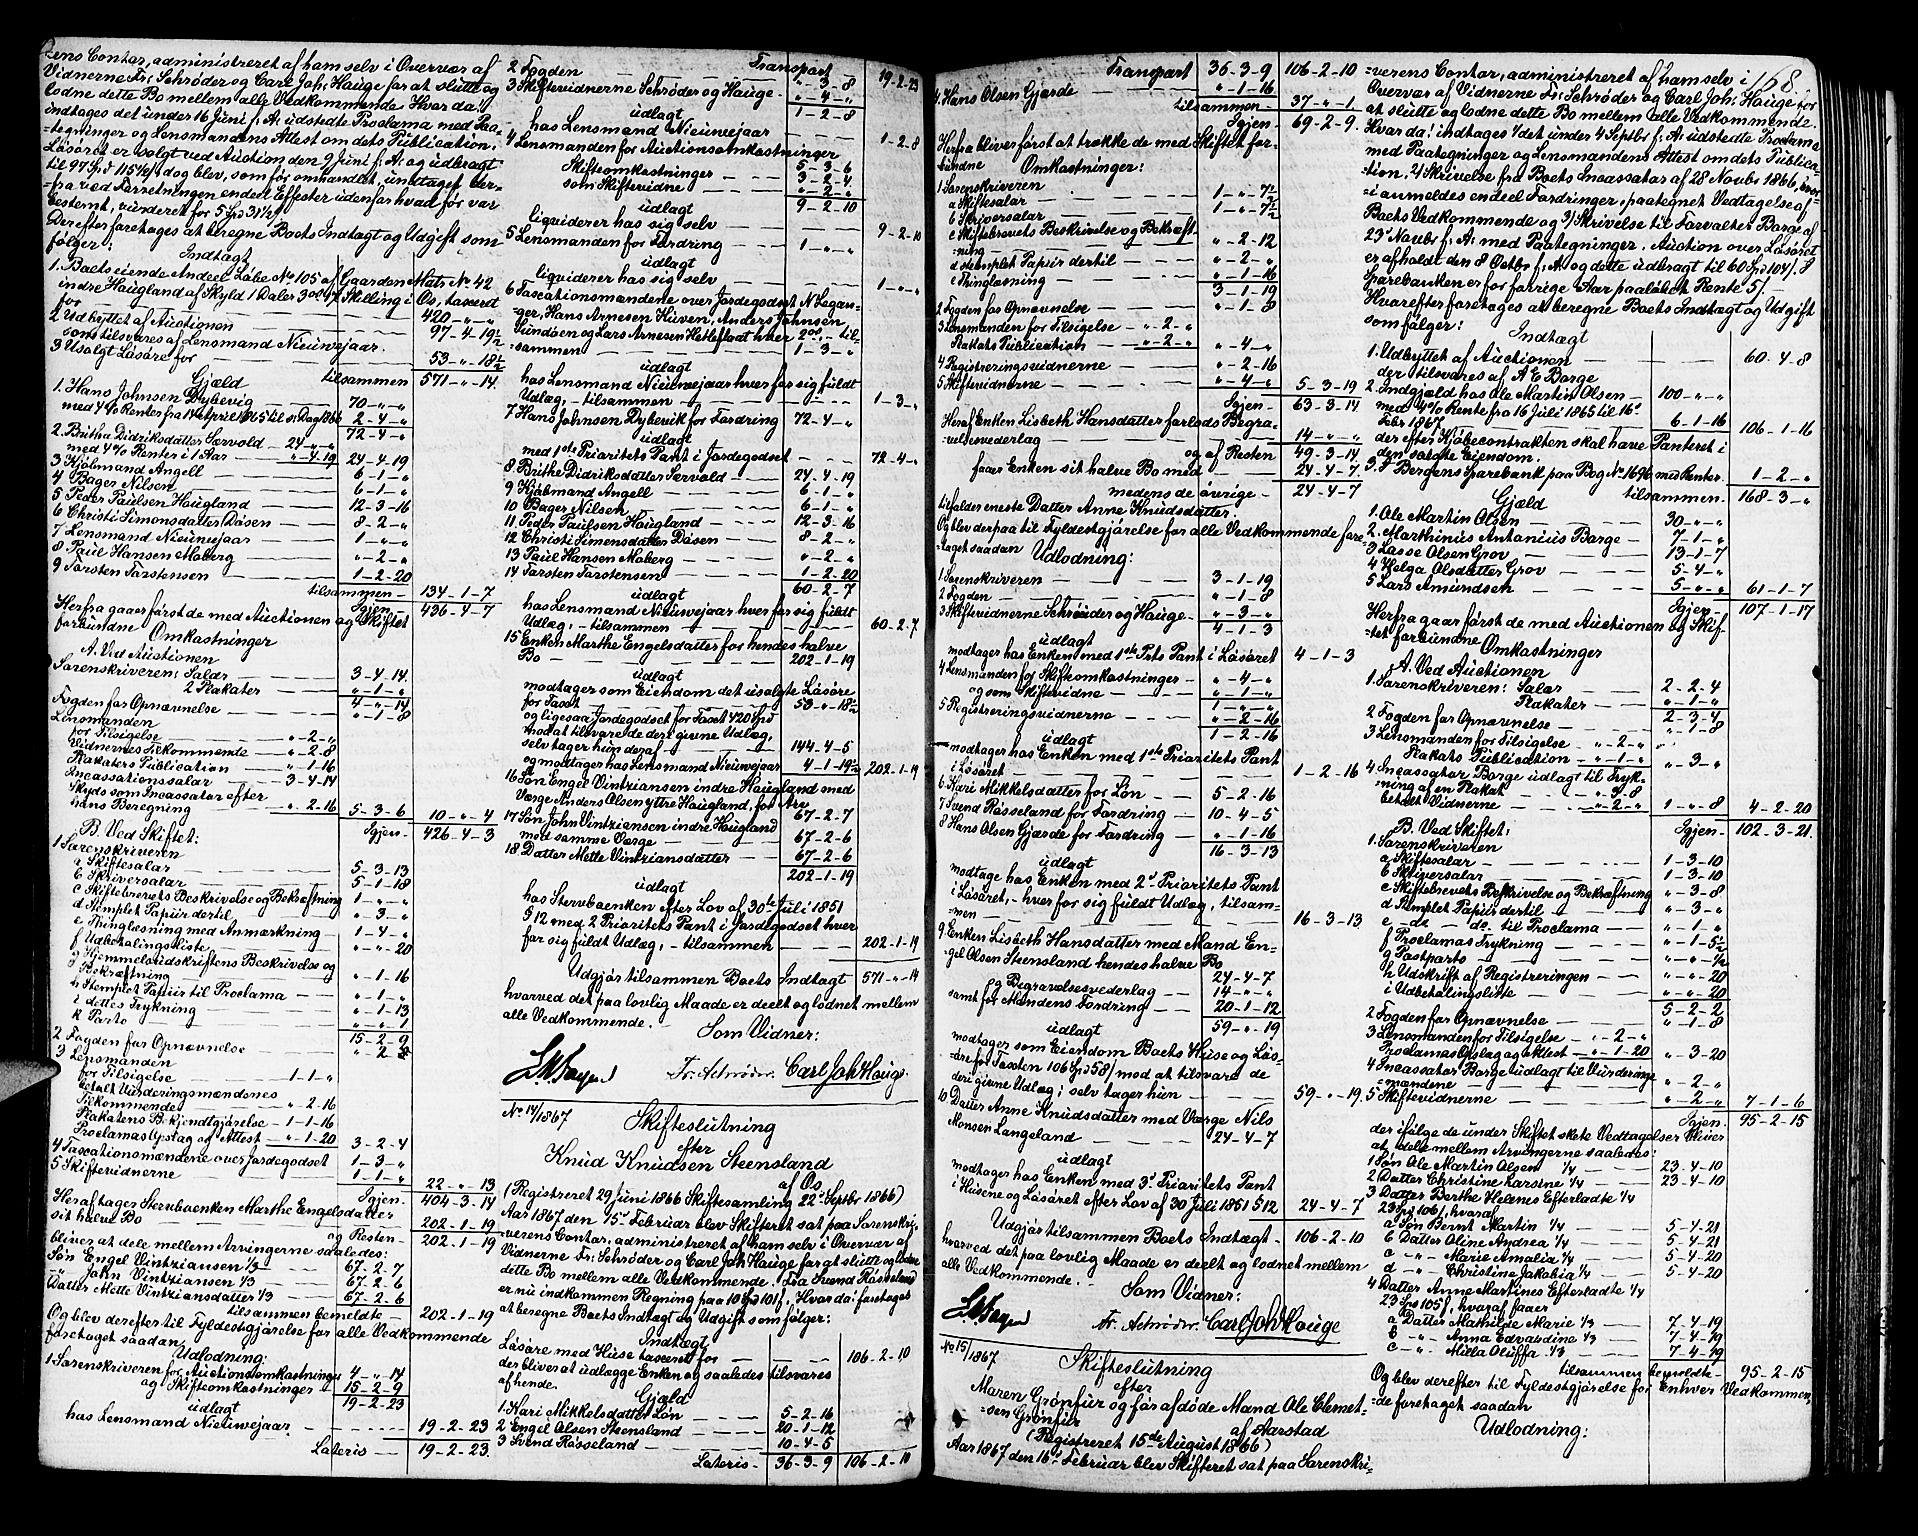 rens Contor, administreret af ham selv i Overvær af
Vidnerne Fr: Schrøder og Carl Joh: Hauge for at slutte og
lodne dette Bo mellem alle Vedkommende. Hvor da:
indtages det under 16 Juni f: A: udstedte Proclama med Paa-
=tegninger og Lensmandens Attest om dets Publication.
Løsøret er solgt ved Auction den 9 Juni f: A: og udbragt
til 97 Spd 115½ ß og blev, som før omhandlet, undtaget der-
=fra ved Forretningen endeel Effecter udenfor hvad før var
bestemt, vurderet for 5 Spd 31½ ß
Derefter foretages at beregne Boets Indtægt og Udgift som
følger:
Indtægt
1. Boets eiende Andeel Løbe No 105 af Gaarden Mats No 42
indre Haugland af Skyld 1 Daler 3 Ort 17 Skilling i Os, taxeret
for — 420 - „ - „
2 Udbyttet af Auctionen — 97-4-19½
som tilsvares af Lensmand Nieuwejaar.
3 Usolgt Løsøre for — 53-„-18½
tilsammen 571-„-14
Gjæld
1. Hans Johnsen Dybevig — 70-„-„
med 4% Renter fra 14 April 1865 til D: Dag 1866 2-4-„
72-4-„
2. Britha Didriksdatter Særvold — 24-„-„
med 4% Renter i 1 Aar — „-4-19 24-4-19
3 Kjøbmand Angell — 6-1-„
4 Bager Nilsen — 6-1-„
5 Peder Paulsen Haugland — 12-3-16
6 Christi Simonsdatter Døsen — 8-2-„
7 Lensmand Nieuwejaar — 1-„-„
8 Paul Hansen Moberg — „-2-„
9 Torsten Torstensen — 1-2-20
tilsammen — 134-1-7
Igjen — 436-4-7
Herfra gaar først de med Auctionen og Skiftet
forbundne Omkostninger
A. Ved Auctionen
Sorenskriveren: Salær — 3-4-14
2 Plakater — „-1-„
4-„-14
Fogden for Opnævnelse — „-1-8
Lensmanden
for Tilsigelse — „-2-„
Vidnernes Tilkommende — „-2-8
Plakaters Publication — „-1-16
Incassationssalar — 3-4-14
Skyds som Incassator efter
hans Beregning — „-2-16 5-3-6 10-„-4
Igjen — 426-4-3
B. Ved Skiftet:
1 Sorenskriveren
a Skiftesalar — 5-3-13
b Skriversalar — 5-1-18
c Skiftebrevets Beskrivelse og Bekræftning 1-„-„
d stemplet Papiir dertil — „-3-„
e Thinglæsning med Anmærkning — 1-4-„
f Udbetalingsliste — „-„-20
g Hjemmelsudskriftens Beskrivelse og
Bekræftning — „-1-16
h Stemplet Papiir til Proclama — „-1-„
i dettes Trykning — „-1-13
k Porto — „-„-1
15-2-9
2 Fogden for Opnævnelse — „-2-8
3 Lensmanden
for Tilsigelse — 1-1-„
betalt Vurderingsmændenes
Tilkommende — „-2-16
Plakatens Bekjendtgjørelse — 1-1-16
Proclamas Opslag og Attest — „-1-20 3-2-4
4 Taxationsmændene over Jordegodset 1-3-„
5 Skiftevidnerne — 1-1-„
22-„-13
Igjen — 404-3-14
Heraf tager Stervboenken Marthe Engelsdatter
sit halve Bo — 202-1-19
og Resten — 202-1-19
bliver at dele mellem Arvingerne saaledes:
Søn Engel Vintziansen 1/3 — 67-2-7
-„- John Vintziansen 1/3 — 67-2-6
Datter Mette Vintziansdatter 1/3 — 67-2-6
tilsammen bemeldte — 202-1-19
Og blev derefter til Fyldestgjørelse for alle Vedkommende
foretaget saadan Udlodning:
1 Sorenskriveren for Auctionsomkostninger 4-„-14
og Skifteomkostninger — 15-2-9
19-2-23
udlagt
hos Lensmand Nieuwejaar — 19-2-23
Lateris — 19-2-23.
Transport 19-2-23
2 Fogden — „-3-8
3 Skiftevidnerne Schrøder og Hauge — „-4-„
1-2-8
udlagt
hos Lensmand Nieuwejaar — 1-2-8
4 Lensmanden for Auctionsomkostninger 5-3-6
Skifteomkostninger — 3-2-4
som Skiftevidne — „-2-„
9-2-10
udlagt
liquiderer hos sig selv — 9-2-10
5 Lensmanden for Fordring — 1-„-„
udlagt
liquiderer hos sig selv — 1-„-„
6 Taxationsmændene over Jordegodset N Legan-
ger, Hans Arnesen Huven, Anders Johnsen
Sundøen og Lars Arnesen Hetlefladt hver 2 Ort - til-
=sammen — 1-3-„
udlagt
hos Lensmand Nieuwejaar hver for sig fuldt
Udlæg, - tilsammen — 1-3-„
7 Hans Johnsen Dybevik for Fordring 72-4-„
udlagt
med 1ste Prioritets Pant i Jordegodset — 72-4-„
8 Brithe Didriksdatter Særvold — 24-4-19
9 Kjøbmand Angell — 6-1-„
10 Bager Nilsen — 6-1-„
11 Peder Paulsen Haugland — 12-3-16
12 Christi Simensdatter Døsen — 8-2-„
13 Paul Hansen Moberg — „-2-„
14 Torsten Torstensen — 1-2-20
60-2-7
udlagt
hos Lensmand Nieuwejaar hver for sig fuldt
Udlæg, - tilsammen — 60-2-7
15 Enken Marthe Engelsdatter for hendes halve
Bo — 202-1-19
udlagt
modtager som Eiendom det usolgte Løsøre
for Taxt — 53-„-18½
og ligesaa Jordegodset for Taxt 420 Spd
mod at tilsvare de deri givne Udlæg,
selv tager hun deraf — 144-4-5
og modtager hos Lensmand Nieuwejaar 4-1-19½ 202-1-19
16 Søn Engel Vintziansen indre Haugland med
Værge Anders Olsen yttre Haugland, for Arv
67-2-7
17 Søn John Vintziansen indre Haugland
med samme Værge — 67-2-6
18 Datter Mette Vintziansdatter — 67-2-6
202-1-19
udlagt
hos Stervboenken efter Lov af 30te Juli 1851
§ 12 med 2 Prioritets Pant i Jordegodset hver
for sig fuldt Udlæg, - tilsammen — 202-1-19
Udgjør tilsammen Boets Indtægt 571-„-14
hvorved det paa lovlig Maade er deelt og lodnet mellem
alle Vedkommende. —
Som Vidner:
Fr. Schrøder. Carl Joh Hauge.
No 14/1867
Skifteslutning
efter
Knud Knudsen Steensland
af Os
(Registreret 29 Juni 1866 Skiftesamling 22d Septbr 1866)
Aar 1867 den 15d Februar blev Skifteret sat paa Sorenskri-
verens Contor, administreret af ham selv i Overvær af
Vidnerne Fr: Schrøder og Carl Joh Hauge for at slutte og lodne
dette Bo mellem alle Vedkommende. Fra Svend Røsseland
er nu indkommen Regning paa 10 Spd 101 ß, Hvor da: foretages
at beregne Boets Indtægt og Udgift som følger:
Indtægt
Løsøre med Huse taxeret for — 106-2-10
der bliver at udlægge Enken og saaledes tilsvares
af hende.
Gjæld
1 Kari Mikkelsdatter Løn — 5-2-16
2 Engel Olsen Steensland — 20-1-12
3 Svend Røsseland — 10-4-5
Lateris — 36-3-9 106-2-10
168
Transport 36-3-9 106-2-10
4. Hans Olsen Gjerde — „-1-16
tilsammen — 37-„-1
Igjen — 69-2-9.
Herfra bliver først at trække de med Skiftet for-
bundne Omkostninger:
1 Sorenskriveren
a Skiftesalar — 1-„-7½
b Skriversalar — 1-„-7½
c Skiftebrevets Beskrivelse og Bekræft-
ning — „-2-12
d stemplet Papiir dertil — „-2-„
e Thinglæsning — „-1-16
3-1-19
2 Fogden for Opnævnelse — „-1-8
3 Lensmanden for Tilsigelse - „-2-„
Plakats Publication — „-2-„ „-4-„
4 Registreringsvidnerne — „-2-16
5 Skiftevidnerne — „-4-„ 5-3-19
Igjen — 63-3-14
Heraf Enken Lisbeth Hansdatter forlods Begra-
velsesvederlag — 14-„-„
og af Resten — 49-3-14
faaer Enken sit halve Bo med — 24-4-7
medens de øvrige — 24-4-7
tilfalder eneste Datter Anne Knudsdatter.
Og blev derpaa til Fyldestgjørelse for alle Vedkommende fore-
=taget saadan Udlodning:
1 Sorenskriveren — 3-1-19
2 Fogden — „-1-8
3 Skiftevidnerne Schrøder og Hauge — „-3-„
4-1-3
udlagt
modtager hos Enken med 1ste Prts Pant i Løsøret 4-1-3
4 Lensmanden for Skifteomkostninger — „-4-„
og som Skiftevidne — „-1-„
1-„-„
5 Registreringsvidnerne — „-2-16
1-2-16
udlagt
modtager hos Enken med 1ste Prioritets Pant
i Løsøret — 1-2-16
6 Kari Mikkelsdatter for Løn — 5-2-16
7 Svend Røsseland for Fordring — 10-4-5
8 Hans Olsen Gjerde for Fordring — „-1-16
16-3-13
udlagt
modtage hos Enken med 2d Prioritets Pant
i Løsøret, - hver for sig fuldt Udlæg, tilsam-
=men — 16-3-13
9 Enken Lisbeth Hansdatter med Mand En-
gel Olsen Steensland hendes halve Bo
24-4-7
og Begravelsesvederlag — 14-„-„
samt for Mandens Fordring — 20-1-12
59-„-19
udlagt
modtager som Eiendom Boets Huse og Løs-
=øre for Taxten 106 Spd 58 ß mod at tilsvare de
deri givne Udlæg; selv tager hun — 59-„-19
10 Datter Anne Knudsdatter med Værge Nils
Monsen Langeland — 24-4-7
udlagt
modtager hos Enken med 3d Prioritets Pant
i Husene og Løsøret efter Lov af 30 Juli 1851 § 12 24-4-7
Udgjør tilsammen Boets Indtægt — 106-2-10
hvorved det paa lovlig Maade er deelt og lodnet mellem
alle Vedkommende.
Som Vidner:
Fr. Schrøder. Carl Joh Hauge
No 15/1867
Skifteslutning
efter
Maren Grønfur og før afdøde Mand Ole Clemet-
=sen Grønfur
af Aarstad
(Registreret 15de August 1866)
Aar 1867 den 16d Februar blev Skifteret sat paa Sorenskri-
=verens Contor, administreret af ham selv i
Overvær af Vidnerne Fr: Schrøder og Carl Joh: Hauge for
at slutte og lodne dette Bo mellem alle Vedkommende.
Hvor da: indtages 1/ det under 4 Septbr f: A: udstedte Proclama
med Paategninger og Lensmandens Attest om dets Publica-
tion. 2/ Skrivelse fra Boets Incassator af 28 Novbr 1866, hvor-
=i anmeldes endeel Fordringer, paategnet Vedtagelse af
Boets Vedkommende og 3/ Skrivelse til Forvalter Borge af
23d Novbr f: A: med Paategninger. Auction over Løsøret
er afholdt den 8 Octbr f: A: og dette udbragt til 60 Spd 104 ß
Sparebanken er for forrige Aar paaløbet Rente 5 ß.
Hvorefter foretages at beregne Boets Indtægt og Udgift
som følger:
Indtægt
1. Udbyttet af Auctionen — 60-4-8
der tilsvares af A E Borge
2. Indgjæld hos Ole Martin Olsen 100-„-„
med 4% Rente fra 16 Juli 1865 til 16d
Febr 1867 — 6-1-16 106-1-16
der efter Kjøbecontrakten skal have Panteret i
den solgte Eiendom.
3. I Bergens Sparebank paa Bog No 1696 med Renter. 1-2-„
tilsammen. 168-3-„
Gjæld
1. Ole Martin Olsen — 30-„-„
2. Marthinus Antonius Borge — 7-1-„
3 Lasse Olsen Grov — 13-1-7
4 Helga Olsdatter Grov — 5-4-„
5 Lars Amundsen — 5-„-„ 61-1-7
Igjen — 107-1-17
Herfra gaar først de med Auctionen og Skif-
tet forbundne Omkostninger
A. Ved Auctionen
1. Sorenskriveren: Salar — 2-2-4
Plakater — „-1-„
2-3-4
2 Fogden for Opnævnelse — „-1-8
3 Lensmanden for Tilsigelse — „-2-„
Plakats Publication — „-1-„ „-3-„
4 Incassator Borge udlagt til Tryk-
ning af en Plakat — „-4-8
betalt Vidnerne — „-2-„ 1-„-8 4-2-20
Igjen — 102-3-21.
B. Ved Skiftet:
1. Sorenskriveren
a Skiftesalar — 1-3-10
b Skriversalar — 1-3-10
c Skiftebrevets Beskrivelse og Bekræftning „-3-8
d Stemplet Papiir dertil — „-3-„
e do — do til Proclama — „-1-„
f Proclamas Trykning — „-1-5½
g Postporto — „-„-½
h Udskrift af Registreringen — „-„-20
i Udbetalingsliste — „-„-20
5-2-2
2 Fogden for Opnævnelse — „-1-8
3 Lensmanden for Tilsigelse - „-2-„
Proclamas Opslag og Attest — „-1-20 „-3-20
4 Incassator Borge udlagt til Vurderings-
=mændene — „-2-„
5 Skiftevidnerne — „-2-„ 7-1-6
Igjen — 95-2-15
der ifølge de under Skiftet skete Vedtagelser bliver
at dele mellem Arvingerne saaledes:
1 Søn Ole Martin Olsen 1/4 23-4-10
2 Datter Christine Larsine 1/4 23-4-10
3 Datter Berthe Helenes Efterladte 1/4
23 Spd 106 ß, hvoraf
a Søn Bernt Martin 1/4 — 5-4-21
b Datter Oline Andrea 1/4 — 5-4-21
c -„- Marie Amalia 1/4 — 5-4-20
d -„- Christine Jakobia 1/4 — 5-4-20
4 Datter Anne Martines Efterladte 1/4
23 Spd 105 ß, hvoraf faaer
a Datter Mathilde Marie 1/3 — 7-4-19
b -„- Anna Edvardine 1/3 — 7-4-19
c -„- Milla Oluffa 1/3 — 7-4-19
tilsammen bemeldte — 95-2-15
Og blev derefter til Fyldestgjørelse for Enhver Vedkommen-
=de foretaget saadan
Udlodning: